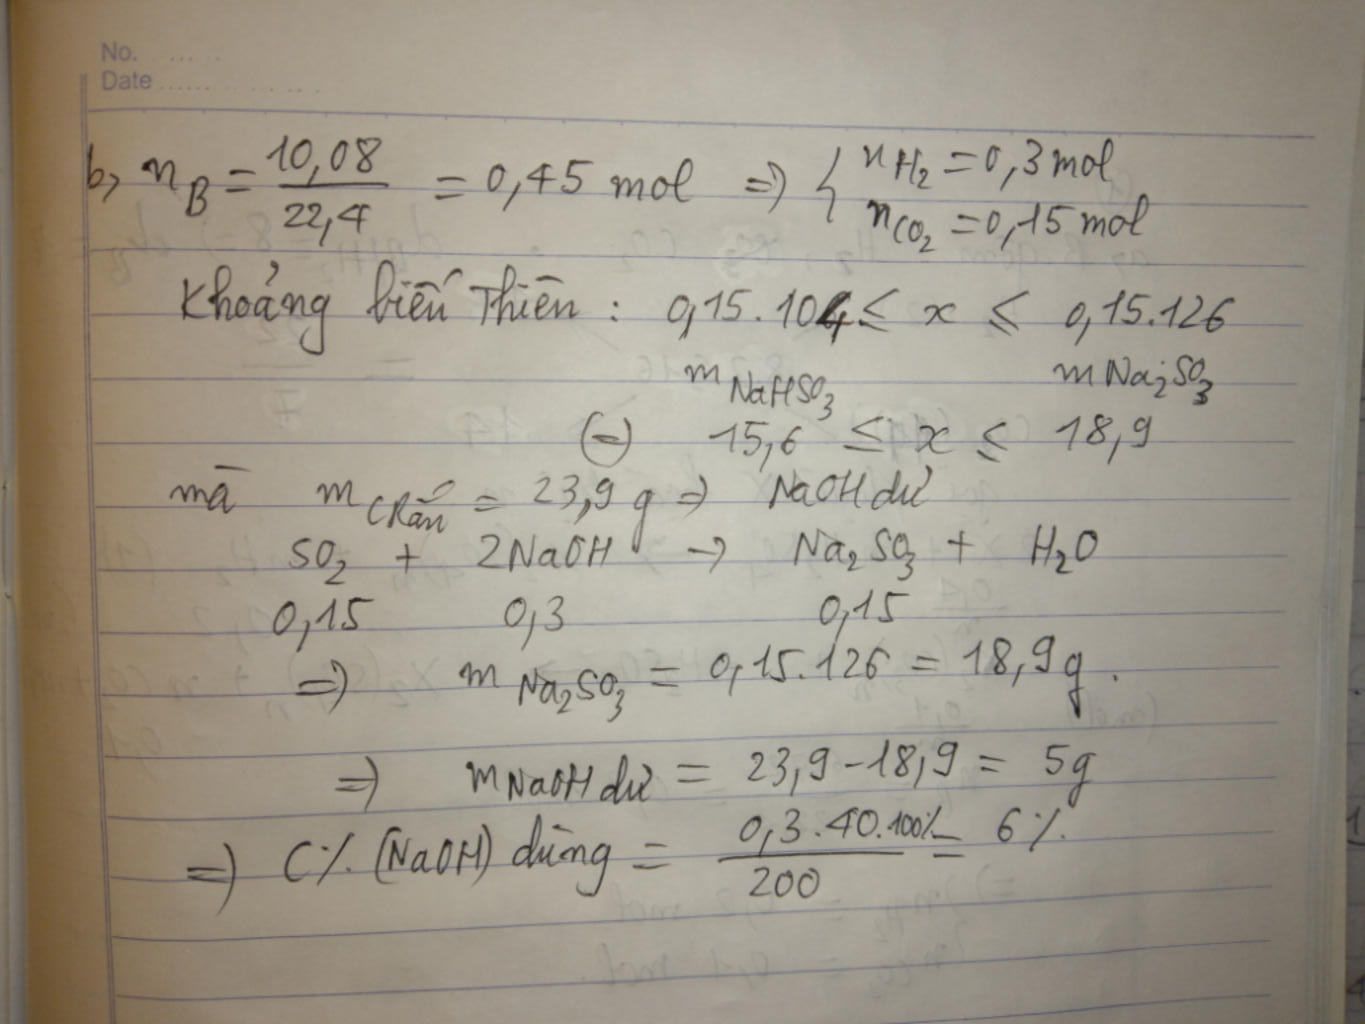 No. .....
Date ..............
b, n_B = 10,08/22,4 = 0,45 mol => { n_H2 = 0,3 mol
n_CO2 = 0,15 mol
Khoảng biến Thiên : 0,15.104 ≤ x ≤ 0,15.126
m NaHSO3 m Na2SO3
(=) 15,6 ≤ x ≤ 18,9
mà m CRắn = 23,9 g => NaOH dư
SO2 + 2NaOH -> Na2SO3 + H2O
0,15 0,3 0,15
=> m Na2SO3 = 0,15.126 = 18,9 g.
=> m NaOH dư = 23,9 - 18,9 = 5g
=> C%(NaOH) dùng = 0,3.40.100%/200 = 6%.